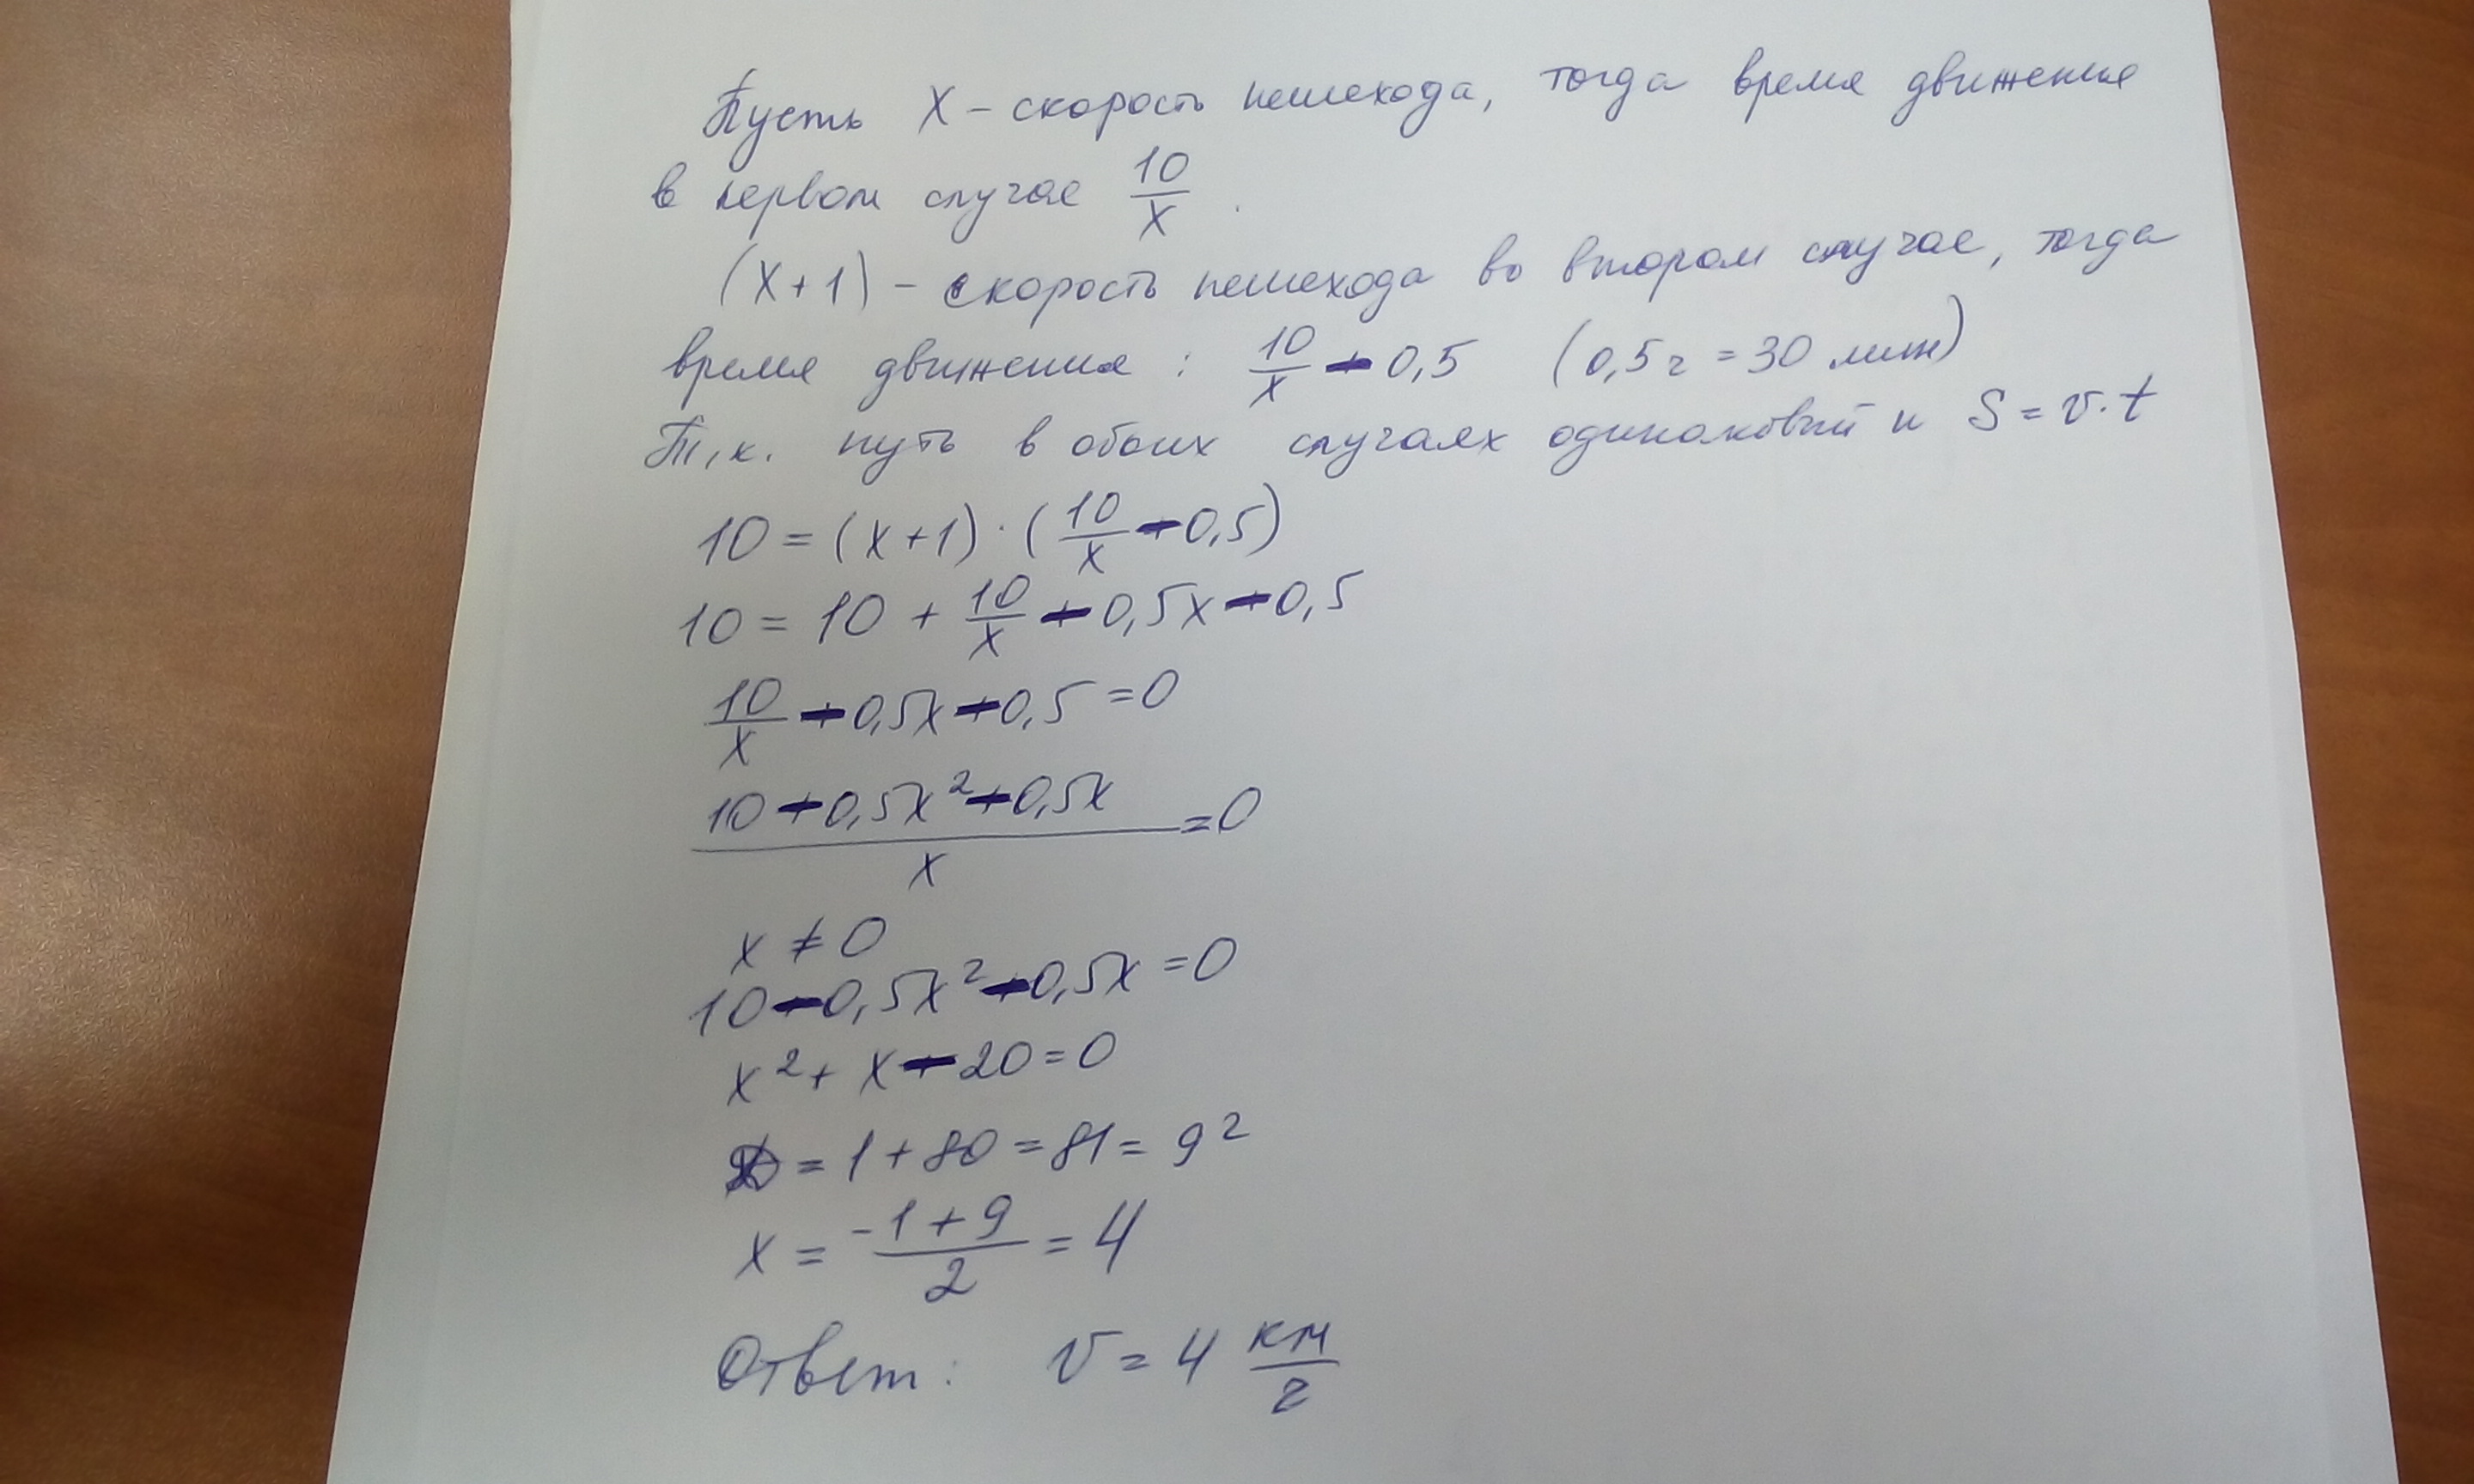 Пусть X – скорость пешехода, тогда время движения
в первом случае 10/x.
(x+1) – скорость пешехода во втором случае, тогда
время движения: 10/x - 0,5 (0,5 г = 30 мин)
Т.к. путь в обоих случаях одинаковый и S = v·t
10 = (x+1)·(10/x - 0,5)
10 = 10 + 10/x - 0,5x - 0,5
10/x - 0,5x - 0,5 = 0
(10 - 0,5x² - 0,5x)/x = 0
x ≠ 0
10 - 0,5x² - 0,5x = 0
x² + x - 20 = 0
D = 1 + 80 = 81 = 9²
x = (-1+9)/2 = 4
Ответ: v = 4 км/г